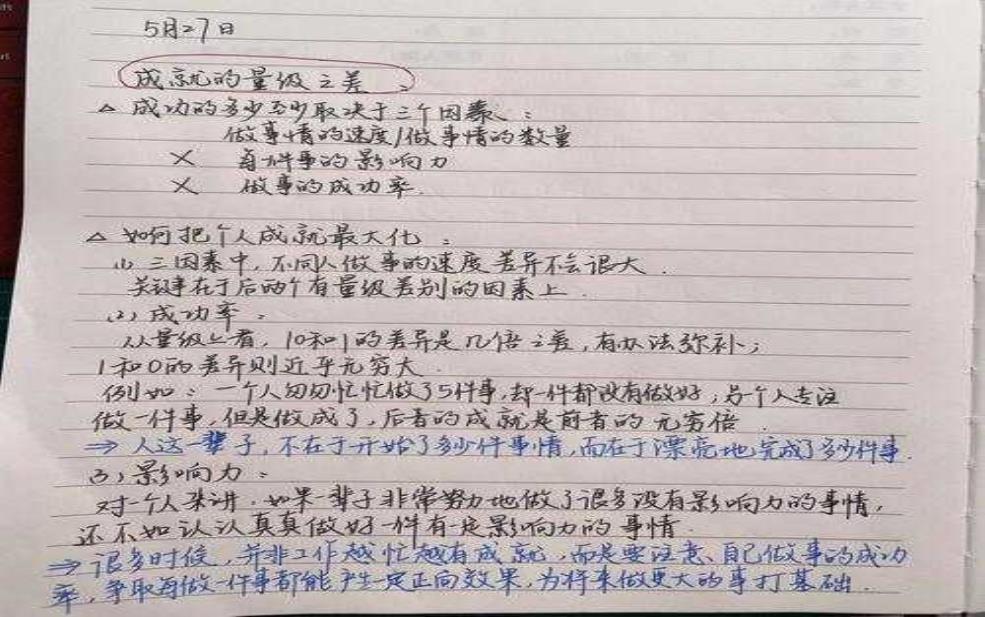 5月27日
成就的量级之差
△ 成功的多少至少取决于三个因素：
做事情的速度/做事情的数量
× 每件事的影响力
× 做事的成功率.
△ 如何把个人成就最大化：
(1) 三因素中,不同人做事的速度差异不会很大.
关键在于后两个有量级差别的因素上.
(2) 成功率：
从量级上看,10和1的差异是几倍之差,有办法弥补；
1和0的差异则近乎无穷大.
例如：一个人匆匆忙忙做了5件事,却一件都没有做好,另个人专注
做一件事,但是做成了,后者的成就是前者的无穷倍.
⇒ 人这一辈子,不在于开始了多少件事情,而在于漂亮地完成了多少件事.
(3) 影响力：
对一个人来讲.如果一辈子非常努力地做了很多没有影响力的事情,
还不如认认真真做好一件有一定影响力的事情.
⇒ 很多时候,并非工作越忙越有成就,而是要注意、自己做事的成功
率,争取每做一件事都能产生一定正向效果,为将来做更大的事打基础.